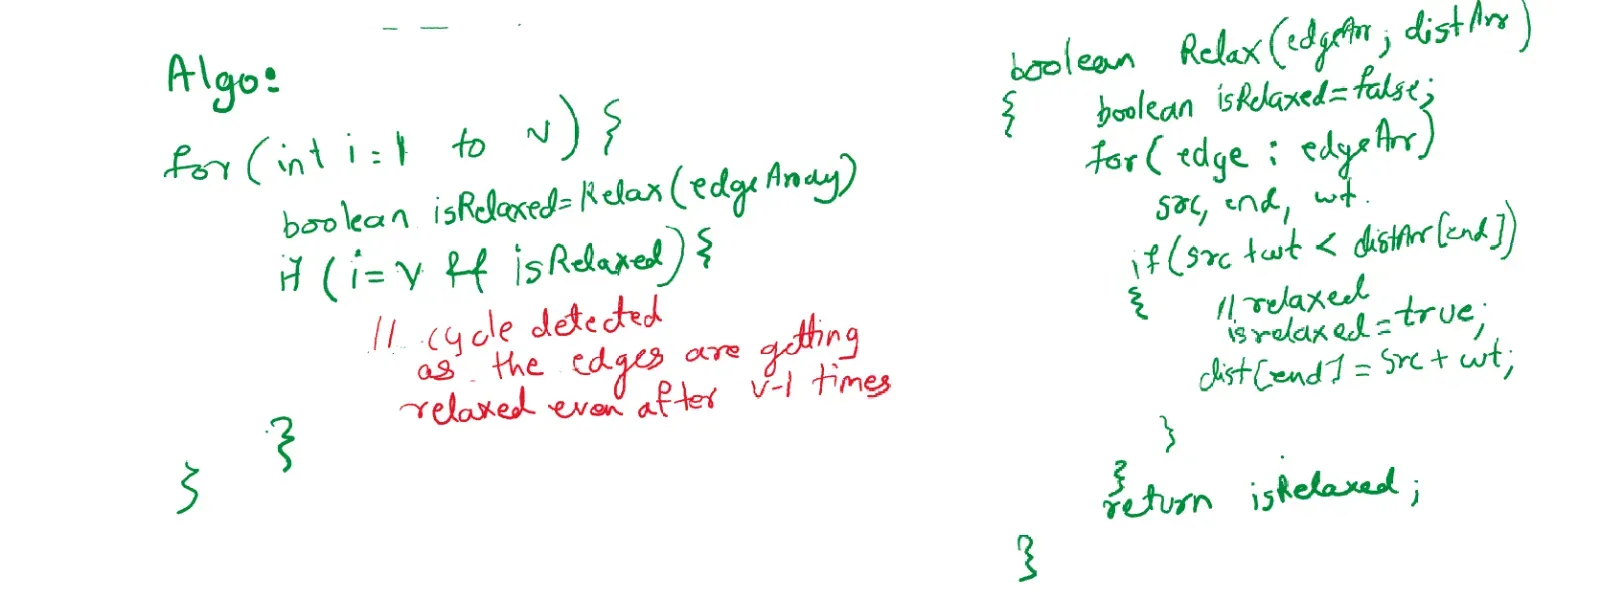 Algo:
for (int i = 1 to v) {
boolean isRelaxed = Relax (edgeArray)
if (i = v && isRelaxed) {
// cycle detected
as the edges are getting
relaxed even after v-1 times
}
}
boolean Relax (edgeArr, distArr)
{
boolean isRelaxed = false;
for ( edge : edgeArr)
src, end, wt.
if (src + wt < distArr[end])
{
// relaxed
isrelaxed = true;
dist[end] = src + wt;
}
}
return isRelaxed;
}